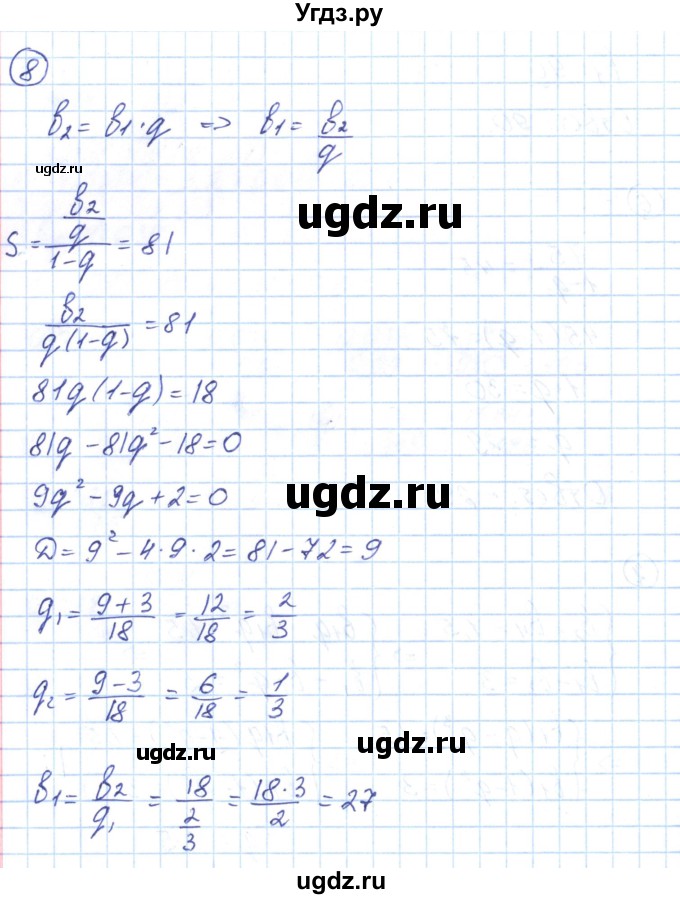 Угдз.ру
8
b₂ = b₁ · q => b₁ = b₂/q
ugdz.ru
ugdz.ru
S = (b₂/q)/(1-q) = 81
b₂/(q(1-q)) = 81
81q(1-q) = 18
81q - 81q² - 18 = 0
9q² - 9q + 2 = 0
ugdz.ru
D = 9² - 4 · 9 · 2 = 81 - 72 = 9
q₁ = (9+3)/18 = 12/18 = 2/3
q₂ = (9-3)/18 = 6/18 = 1/3
ugdz.ru
b₁ = b₂/q₁ = 18/(2/3) = (18·3)/2 = 27
ugdz.ru